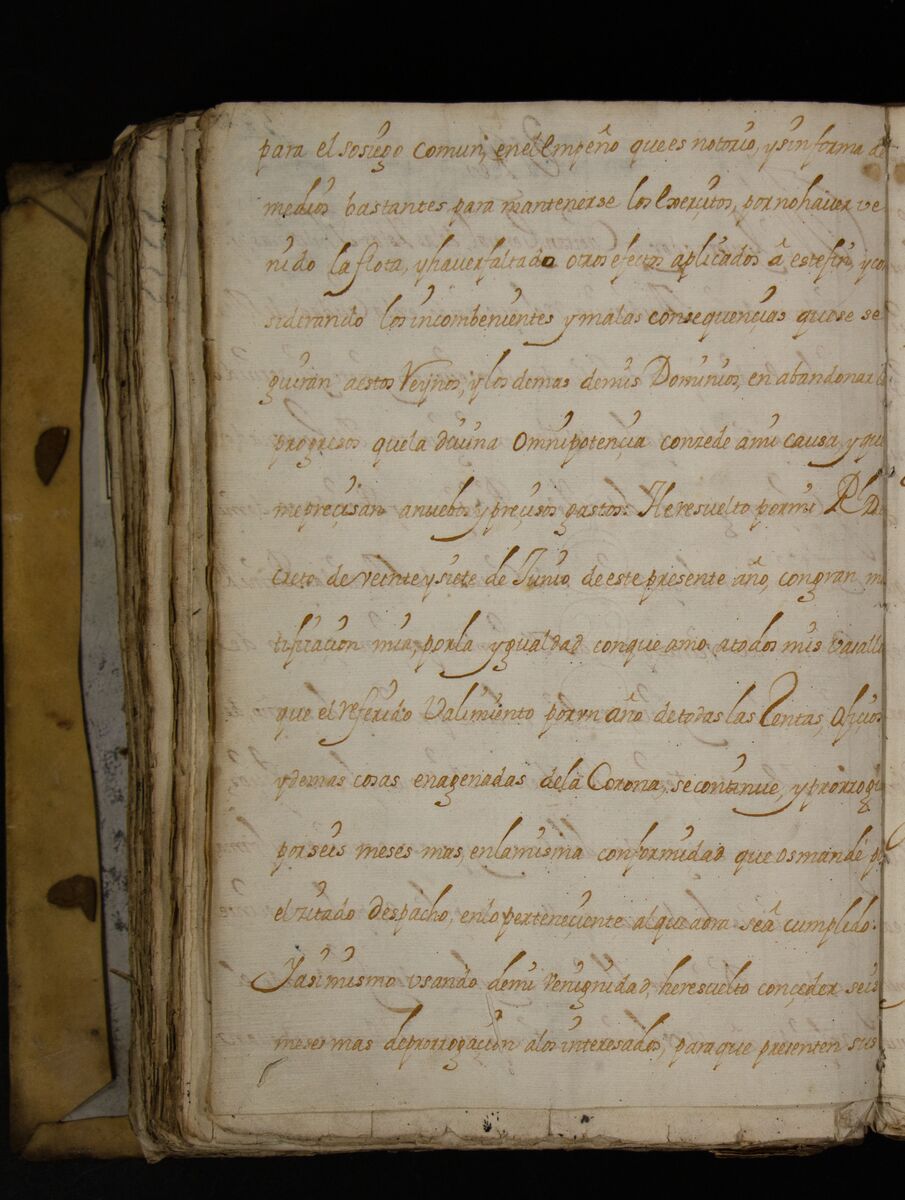 para el sosiego comun, en el empeño que es notorio, y sin forma de
medios bastantes para mantenerse los exercitos, por no haver ve
nido la flota, y haver faltado otros efectos aplicados â este fin, y con
siderando los incombenientes y malas consequençias que se se
guiran a estos Reynos, y los demas de mis Dominios, en abandonar
progresos que la divina Omnipotençia conzede a mi causa, y que
me preçisan a nuebos y preçisos gastos: He resuelto por mi Rl De
creto de veinte y siete de Junio, de este presente año, con gran mor
tificaçion mia, por la ygualdad con que amo a todos mis vasallos
que el referido Valimiento por vn año de todas las Rentas, Ofiçios
y demas cosas enagenadas de la Corona, se continue, y prorrogue
por seis meses mas, en la misma conformidad que os mandé por
el zitado despacho, en lo perteneçiente al que aora seâ cumplido.
Y asimismo vsando de mi venignidad, he resuelto conçeder seis
meses mas de prorrogaçion a los interesados, para que presenten sus